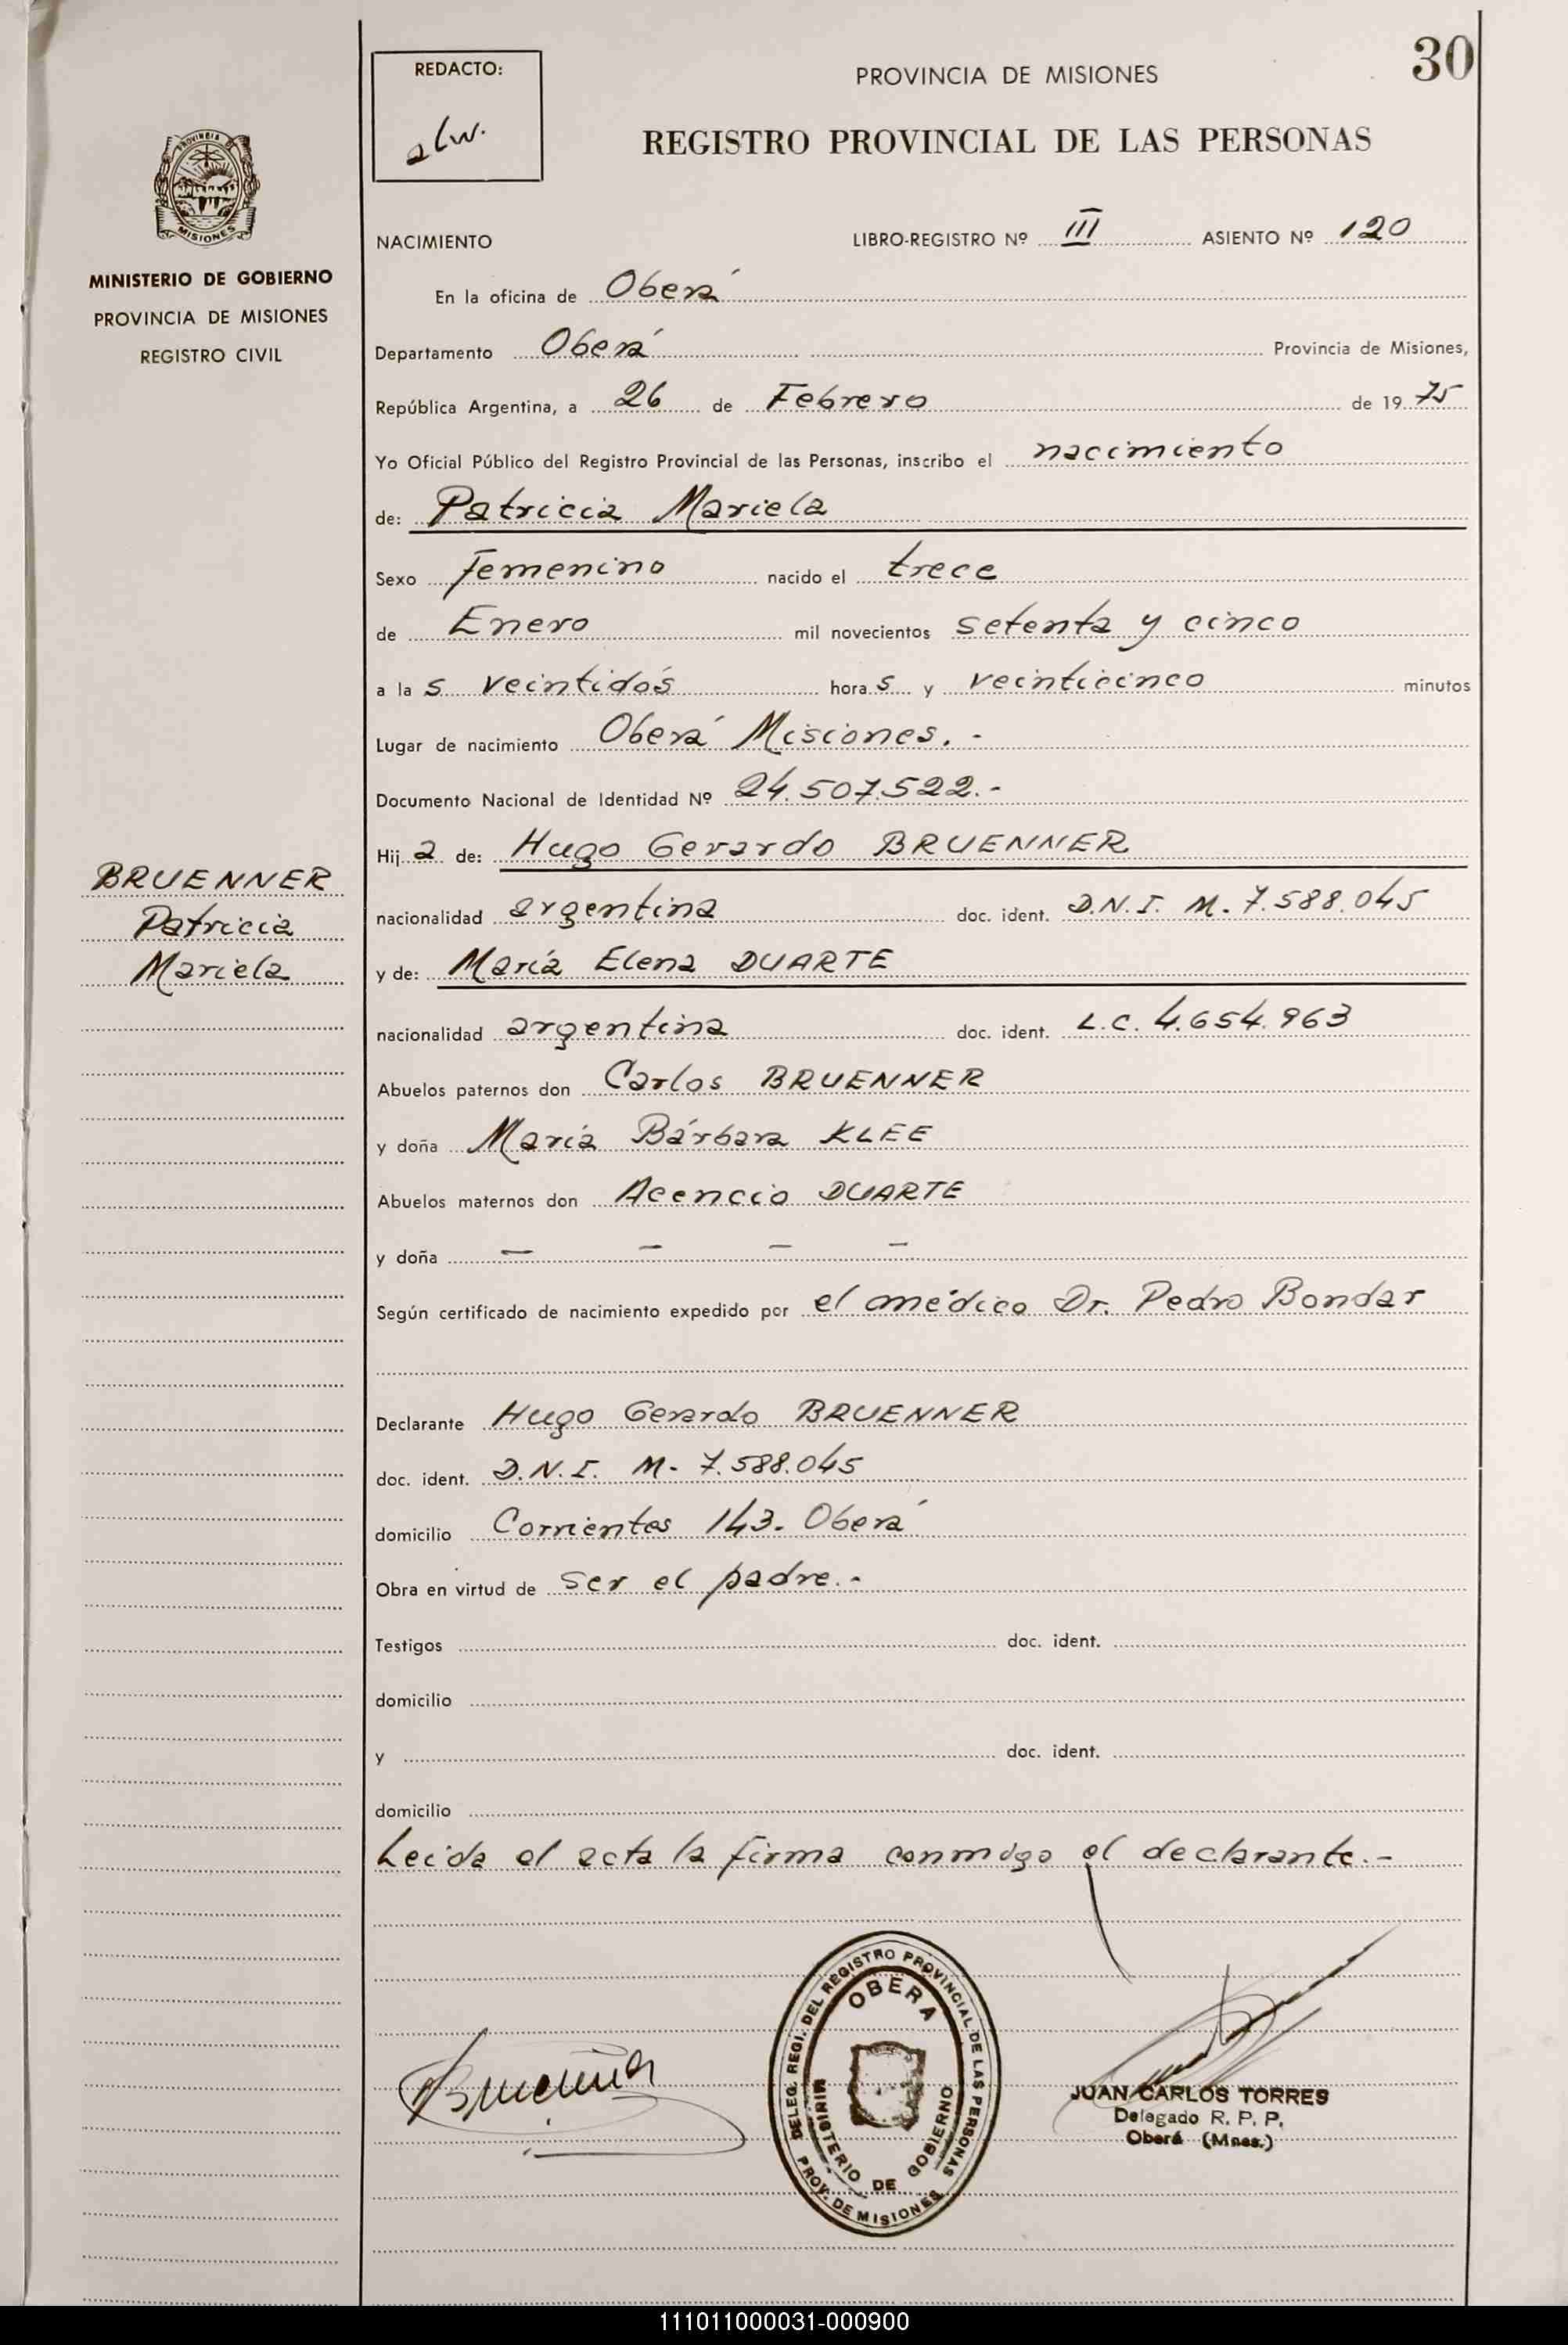 30
REDACTO:
alw.
PROVINCIA DE MISIONES
REGISTRO PROVINCIAL DE LAS PERSONAS
PROVINCIA DE
MISIONES
MINISTERIO DE GOBIERNO
PROVINCIA DE MISIONES
REGISTRO CIVIL
NACIMIENTO LIBRO-REGISTRO Nº III ASIENTO Nº 120
En la oficina de Oberá
Departamento Oberá Provincia de Misiones,
República Argentina, a 26 de Febrero de 1975
Yo Oficial Público del Registro Provincial de las Personas, inscribo el nacimiento
de: Patricia Mariela
Sexo femenino nacido el trece
de Enero mil novecientos setenta y cinco
a la s veintidós hora s y veinticinco minutos
Lugar de nacimiento Oberá Misiones.-
Documento Nacional de Identidad Nº 24.507.522.-
Hij a de: Hugo Gerardo BRUENNER
BRUENNER
Patricia
Mariela
nacionalidad argentina doc. ident. D.N.I. M. 7.588.045
y de: María Elena DUARTE
nacionalidad argentina doc. ident. L.C. 4.654.963
Abuelos paternos don Carlos BRUENNER
y doña María Bárbara KLEE
Abuelos maternos don Acencio DUARTE
y doña — — — —
Según certificado de nacimiento expedido por el médico Dr. Pedro Bondar
Declarante Hugo Gerardo BRUENNER
doc. ident. D.N.I. M- 7.588.045
domicilio Corrientes 143. Oberá
Obra en virtud de ser el padre.-
Testigos doc. ident.
domicilio
y doc. ident.
domicilio
Leida el acta la firma conmigo el declarante.-
DELEG. REGI. DEL REGISTRO PROVINCIAL DE LAS PERSONAS
OBERA
MINISTERIO DE GOBIERNO
PROV. DE MISIONES
JUAN CARLOS TORRES
Delegado R. P. P.
Oberá (Mnes.)
111011000031-000900